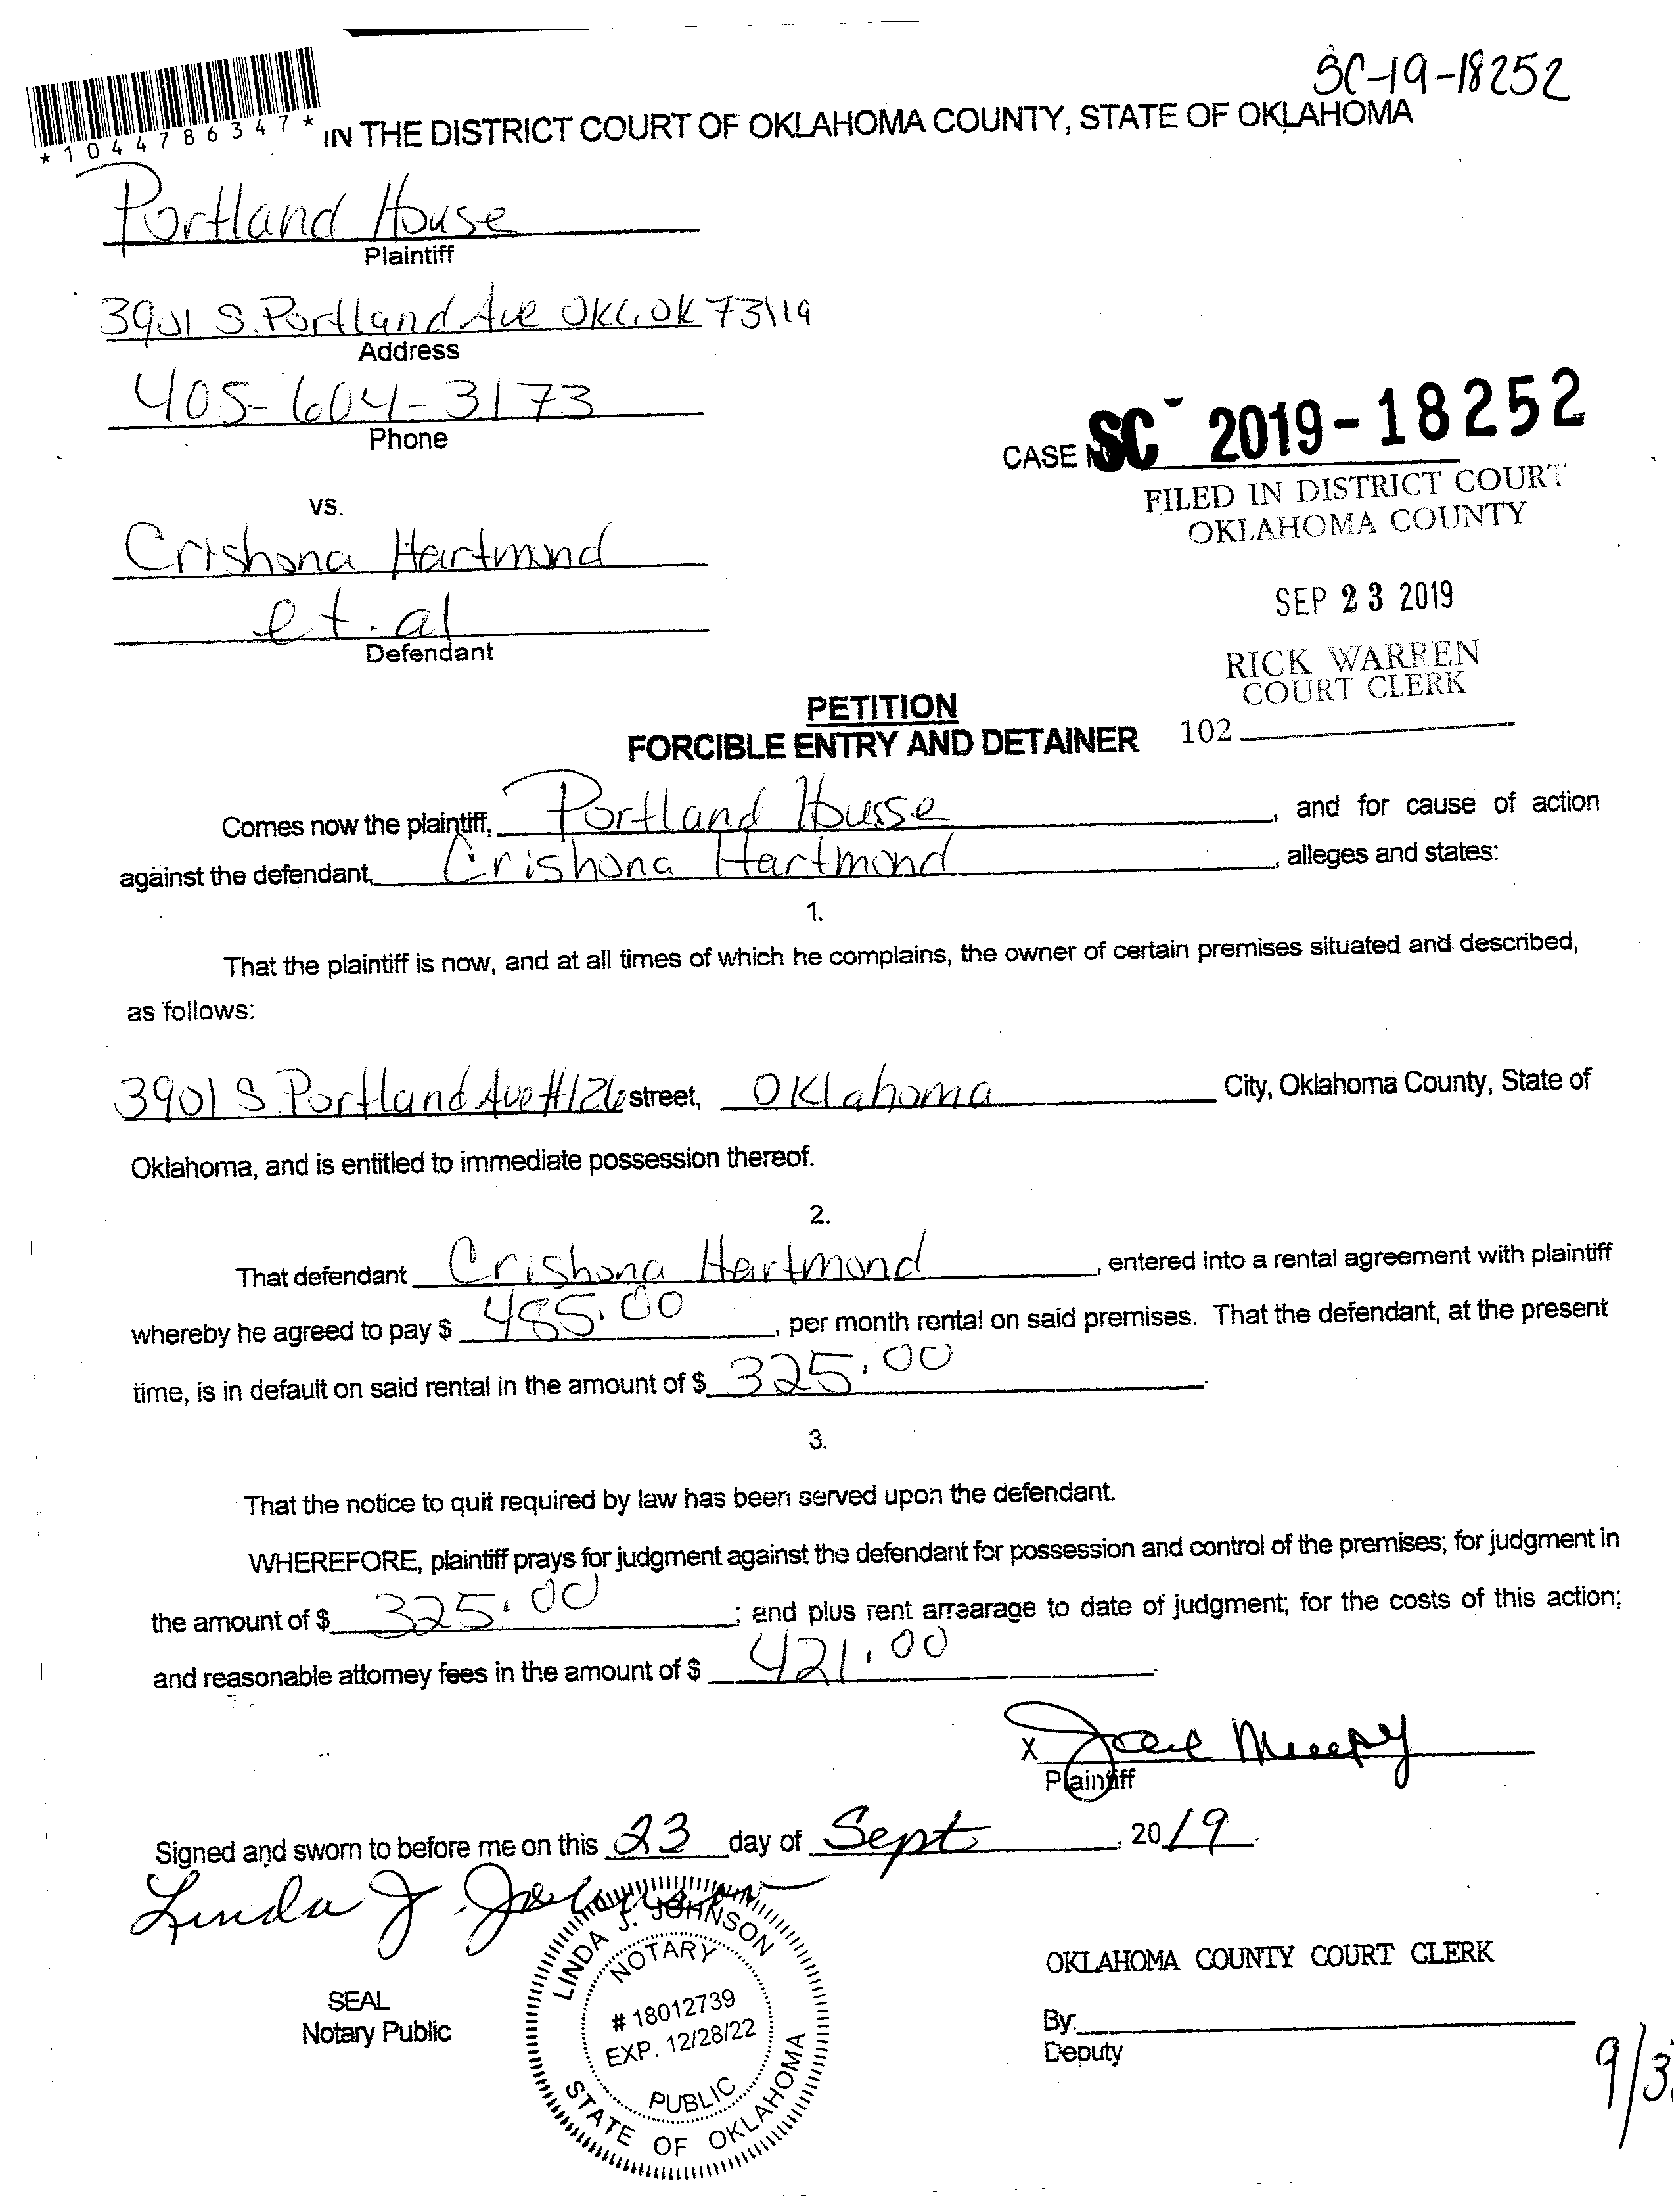 SC-19-18252
*1044786347*
IN THE DISTRICT COURT OF OKLAHOMA COUNTY, STATE OF OKLAHOMA
Portland House
Plaintiff
3901 S. Portland Ave OKC, OK 73119
Address
405-604-3173
Phone
CASE SC 2019-18252
FILED IN DISTRICT COURT
OKLAHOMA COUNTY
vs.
Crishona Hartmond
et. al
Defendant
SEP 23 2019
RICK WARREN
COURT CLERK
102
PETITION
FORCIBLE ENTRY AND DETAINER
Comes now the plaintiff, Portland House, and for cause of action
against the defendant, Crishona Hartmond, alleges and states:
1.
That the plaintiff is now, and at all times of which he complains, the owner of certain premises situated and described,
as follows:
3901 S Portland Ave #126 street, Oklahoma City, Oklahoma County, State of
Oklahoma, and is entitled to immediate possession thereof.
2.
That defendant Crishona Hartmond, entered into a rental agreement with plaintiff
whereby he agreed to pay $ 485.00, per month rental on said premises. That the defendant, at the present
time, is in default on said rental in the amount of $ 325.00.
3.
That the notice to quit required by law has been served upon the defendant.
WHEREFORE, plaintiff prays for judgment against the defendant for possession and control of the premises; for judgment in
the amount of $ 325.00; and plus rent arrearage to date of judgment; for the costs of this action;
and reasonable attorney fees in the amount of $ 421.00.
X
Plaintiff
Signed and sworn to before me on this 23 day of Sept, 2019.
Linda J. Johnson
LINDA J. JOHNSON
NOTARY
# 18012739
EXP. 12/28/22
PUBLIC
STATE OF OKLAHOMA
SEAL
Notary Public
OKLAHOMA COUNTY COURT CLERK
By:
Deputy
9/3